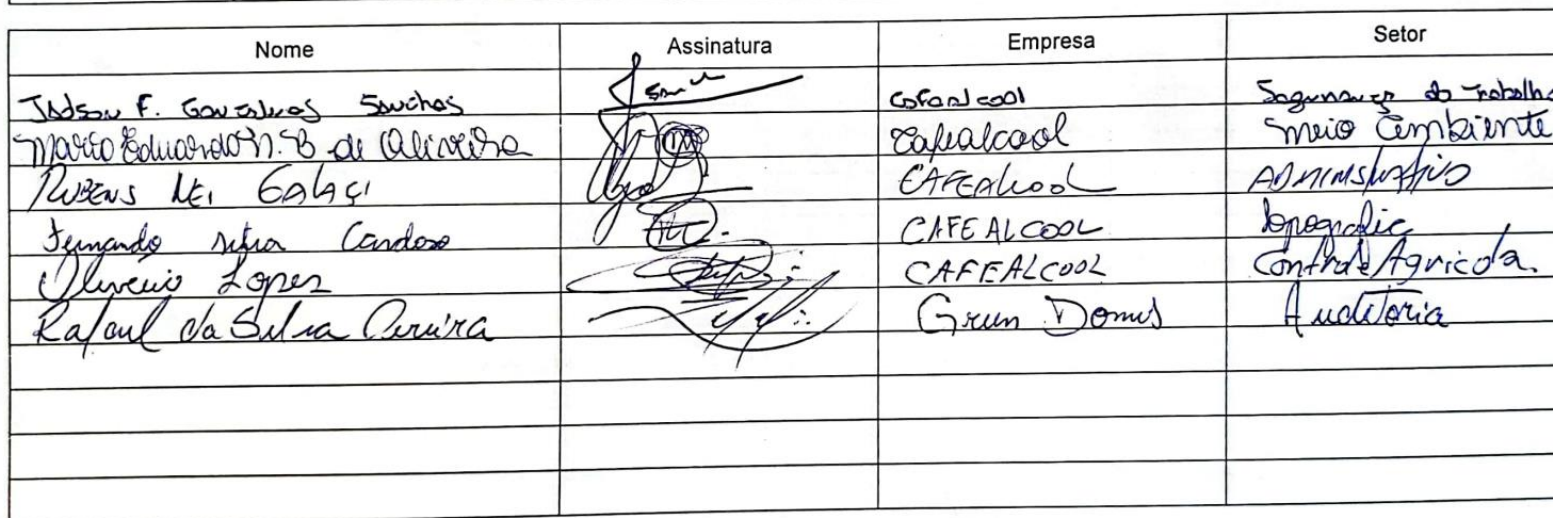 Nome Assinatura Empresa Setor
Jadson F. Gonzalves Sanches Cafealcool Segurança do Trabalho
Mario Eduardo N. B de Oliveira Cafealcool Meio Ambiente
RUBENS NEI GALAÇI CAFEALCOOL ADMINISTRATIVO
Fernando Cardoso CAFEALCOOL topografic
Oliveiro Lopes CAFEALCOOL Controle Agricola.
Rafael da Silva Pereira Grun Domus Auditoria